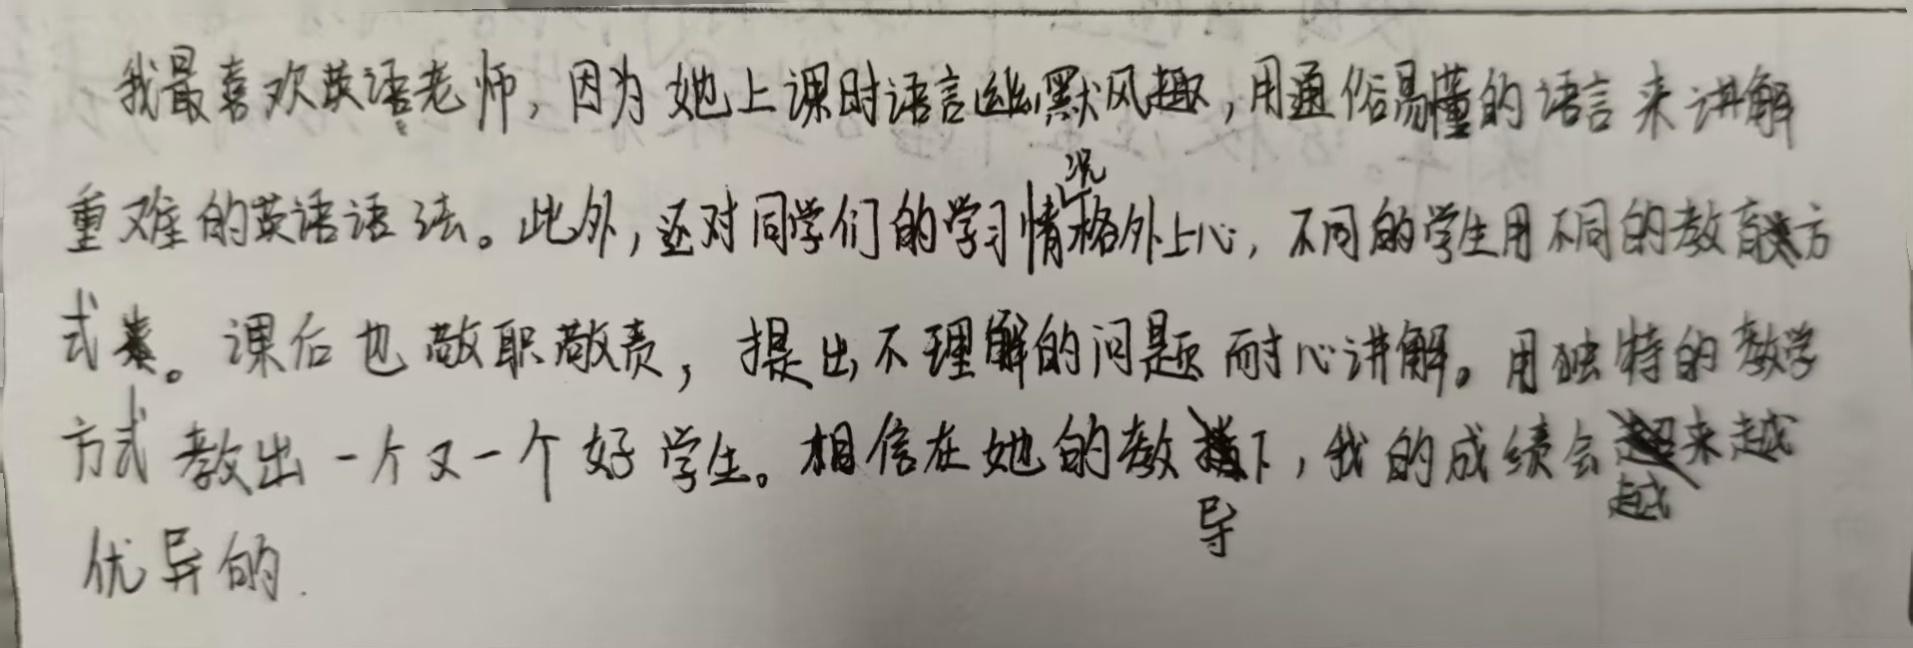 我最喜欢英语老师，因为她上课时语言幽默风趣，用通俗易懂的语言来讲解
重难的英语语法。此外，还对同学们的学习情况格外上心，不同的学生用不同的教育方
式。课后也敬职敬责，提出不理解的问题耐心讲解。用独特的教学
方式教出一个又一个好学生。相信在她的教导下，我的成绩会越来越
优异的.